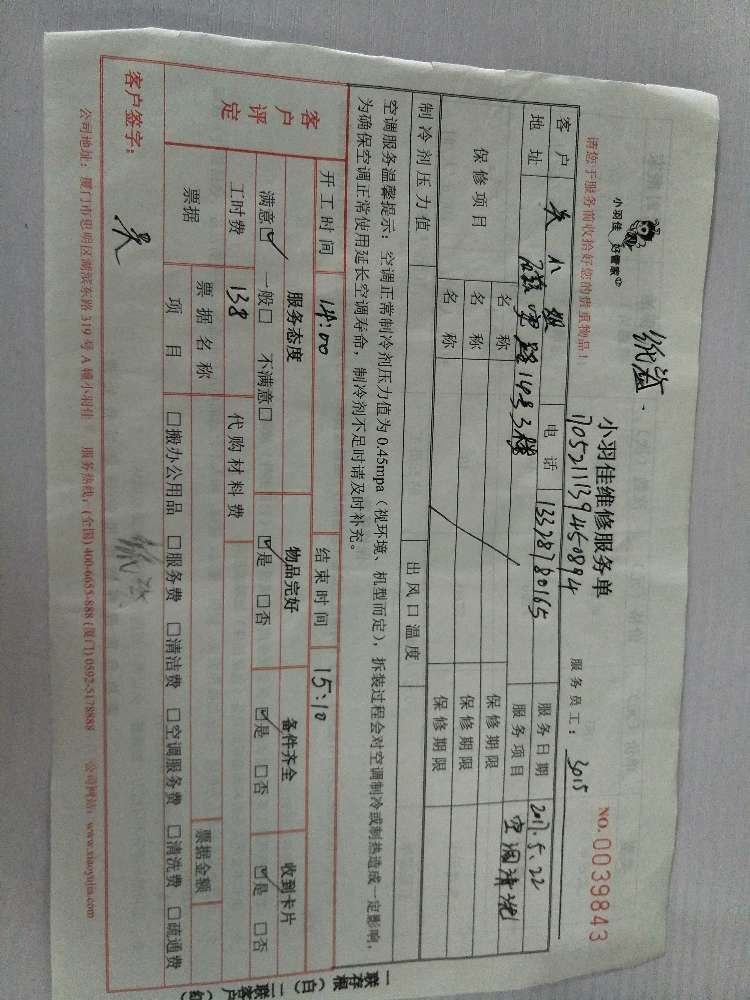 小羽佳 好管家
小羽佳维修服务单
1705211139450894
服务员工： 3015
NO.0039843
请您于服务前收拾好您的贵重物品！
客户
电话 13328780165
服务日期 2017.5.22
地址 142号3楼
服务项目 空调清洗
保修项目 名称 保修期限
名称 保修期限
名称 保修期限
制冷剂压力值 出风口温度
空调服务温馨提示：空调正常制冷剂压力值为0.45mpa（视环境、机型而定），拆装过程会对空调制冷或制热造成一定影响，
为确保空调正常使用延长空调寿命，制冷剂不足时请及时补充。
开工时间 14:00 结束时间 15:10
客户评定
服务态度 物品完好 备件齐全 收到卡片
满意☑ 一般□ 不满意□ ☑是 □否 ☑是 □否 ☑是 □否
工时费 138 代购材料费
票据 票据名称 票据金额
项目 □搬办公用品 □服务费 □清洁费 □空调服务费 □清洗费 □疏通费
客户签字：
公司地址：厦门市思明区湖滨东路319号A幢小羽佳 服务热线：(全国)400-6655-888 (厦门)0592-5178888 公司网站：www.xiaoyujia.com
一联存根（白）二联客户（红）